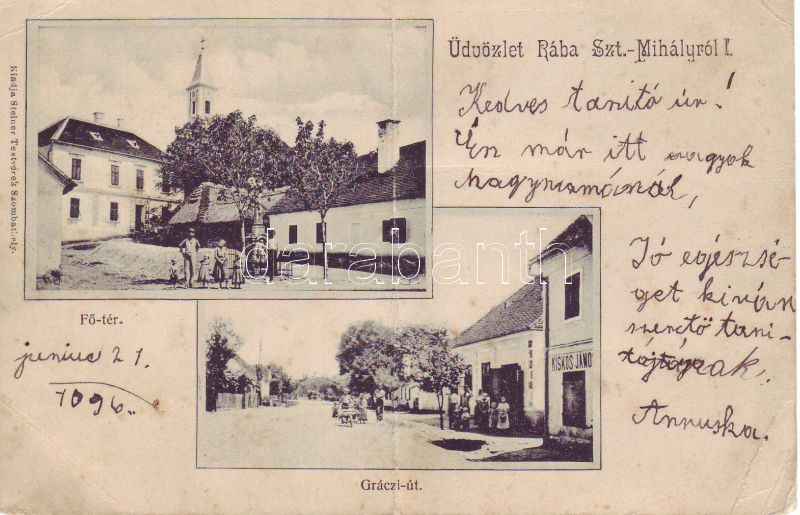 Üdvözlet Rába Szt.-Mihályról!
Kedves tanító úr!
Én már itt vagyok
Nagymamánál,
Jó egészsé-
get kiván
szerető tani-
Annuska.
junius 21.
Kiadja Steiner Testvérek Szombathely.
Fő-tér.
KISKOS JÁNO
Gráczi-út.
darabanth